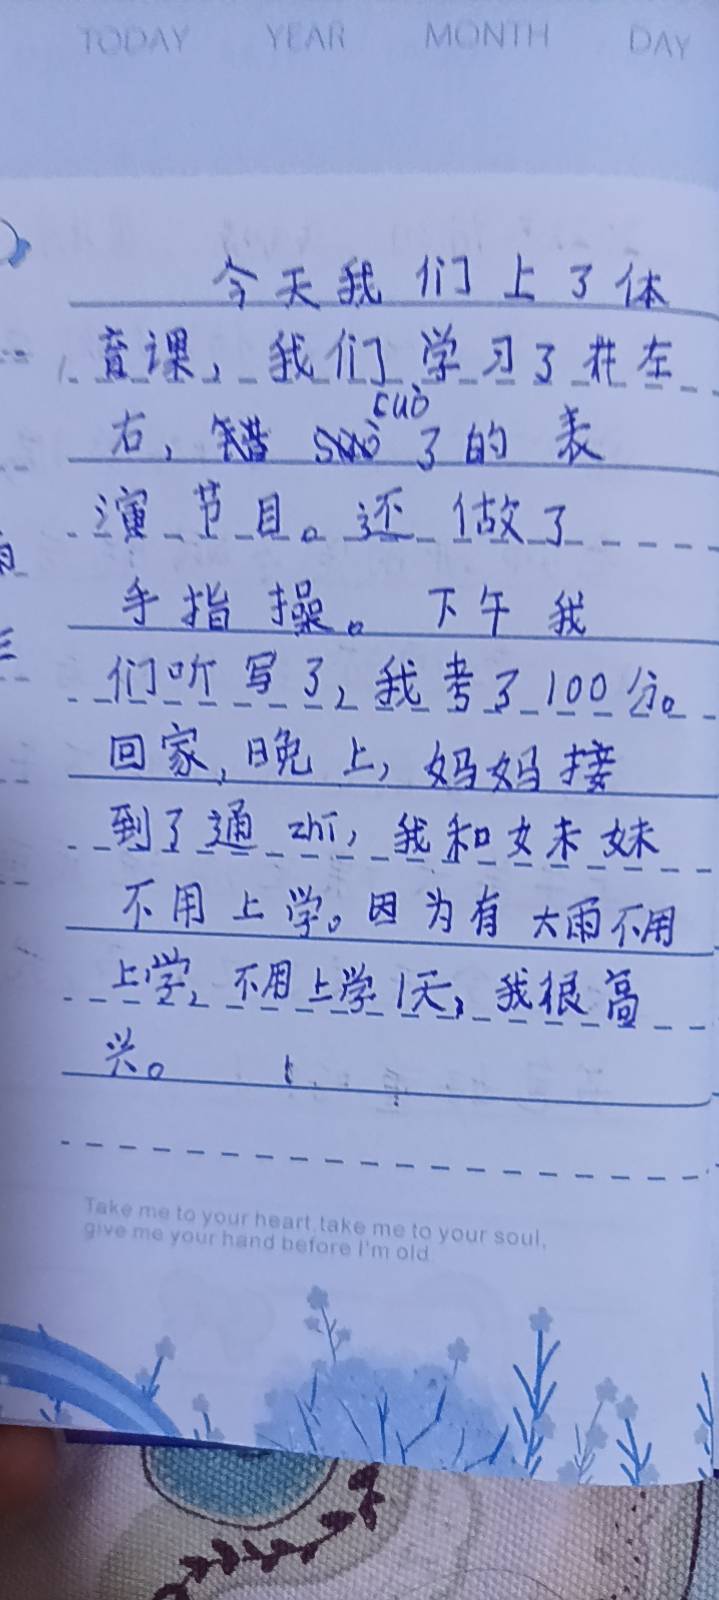 TODAY YEAR MONTH DAY
今天我们上了体
育课，我们学习了井左
cuò
右，错 了的表
演节目。还做了
手指操。下午我
们听写了，我考了100分。
回家，晚上，妈妈接
到了通zhī，我和妹妹
不用上学。因为有大雨不用
上学，不用上学1天，我很高
兴。
Take me to your heart,take me to your soul,
give me your hand before I'm old